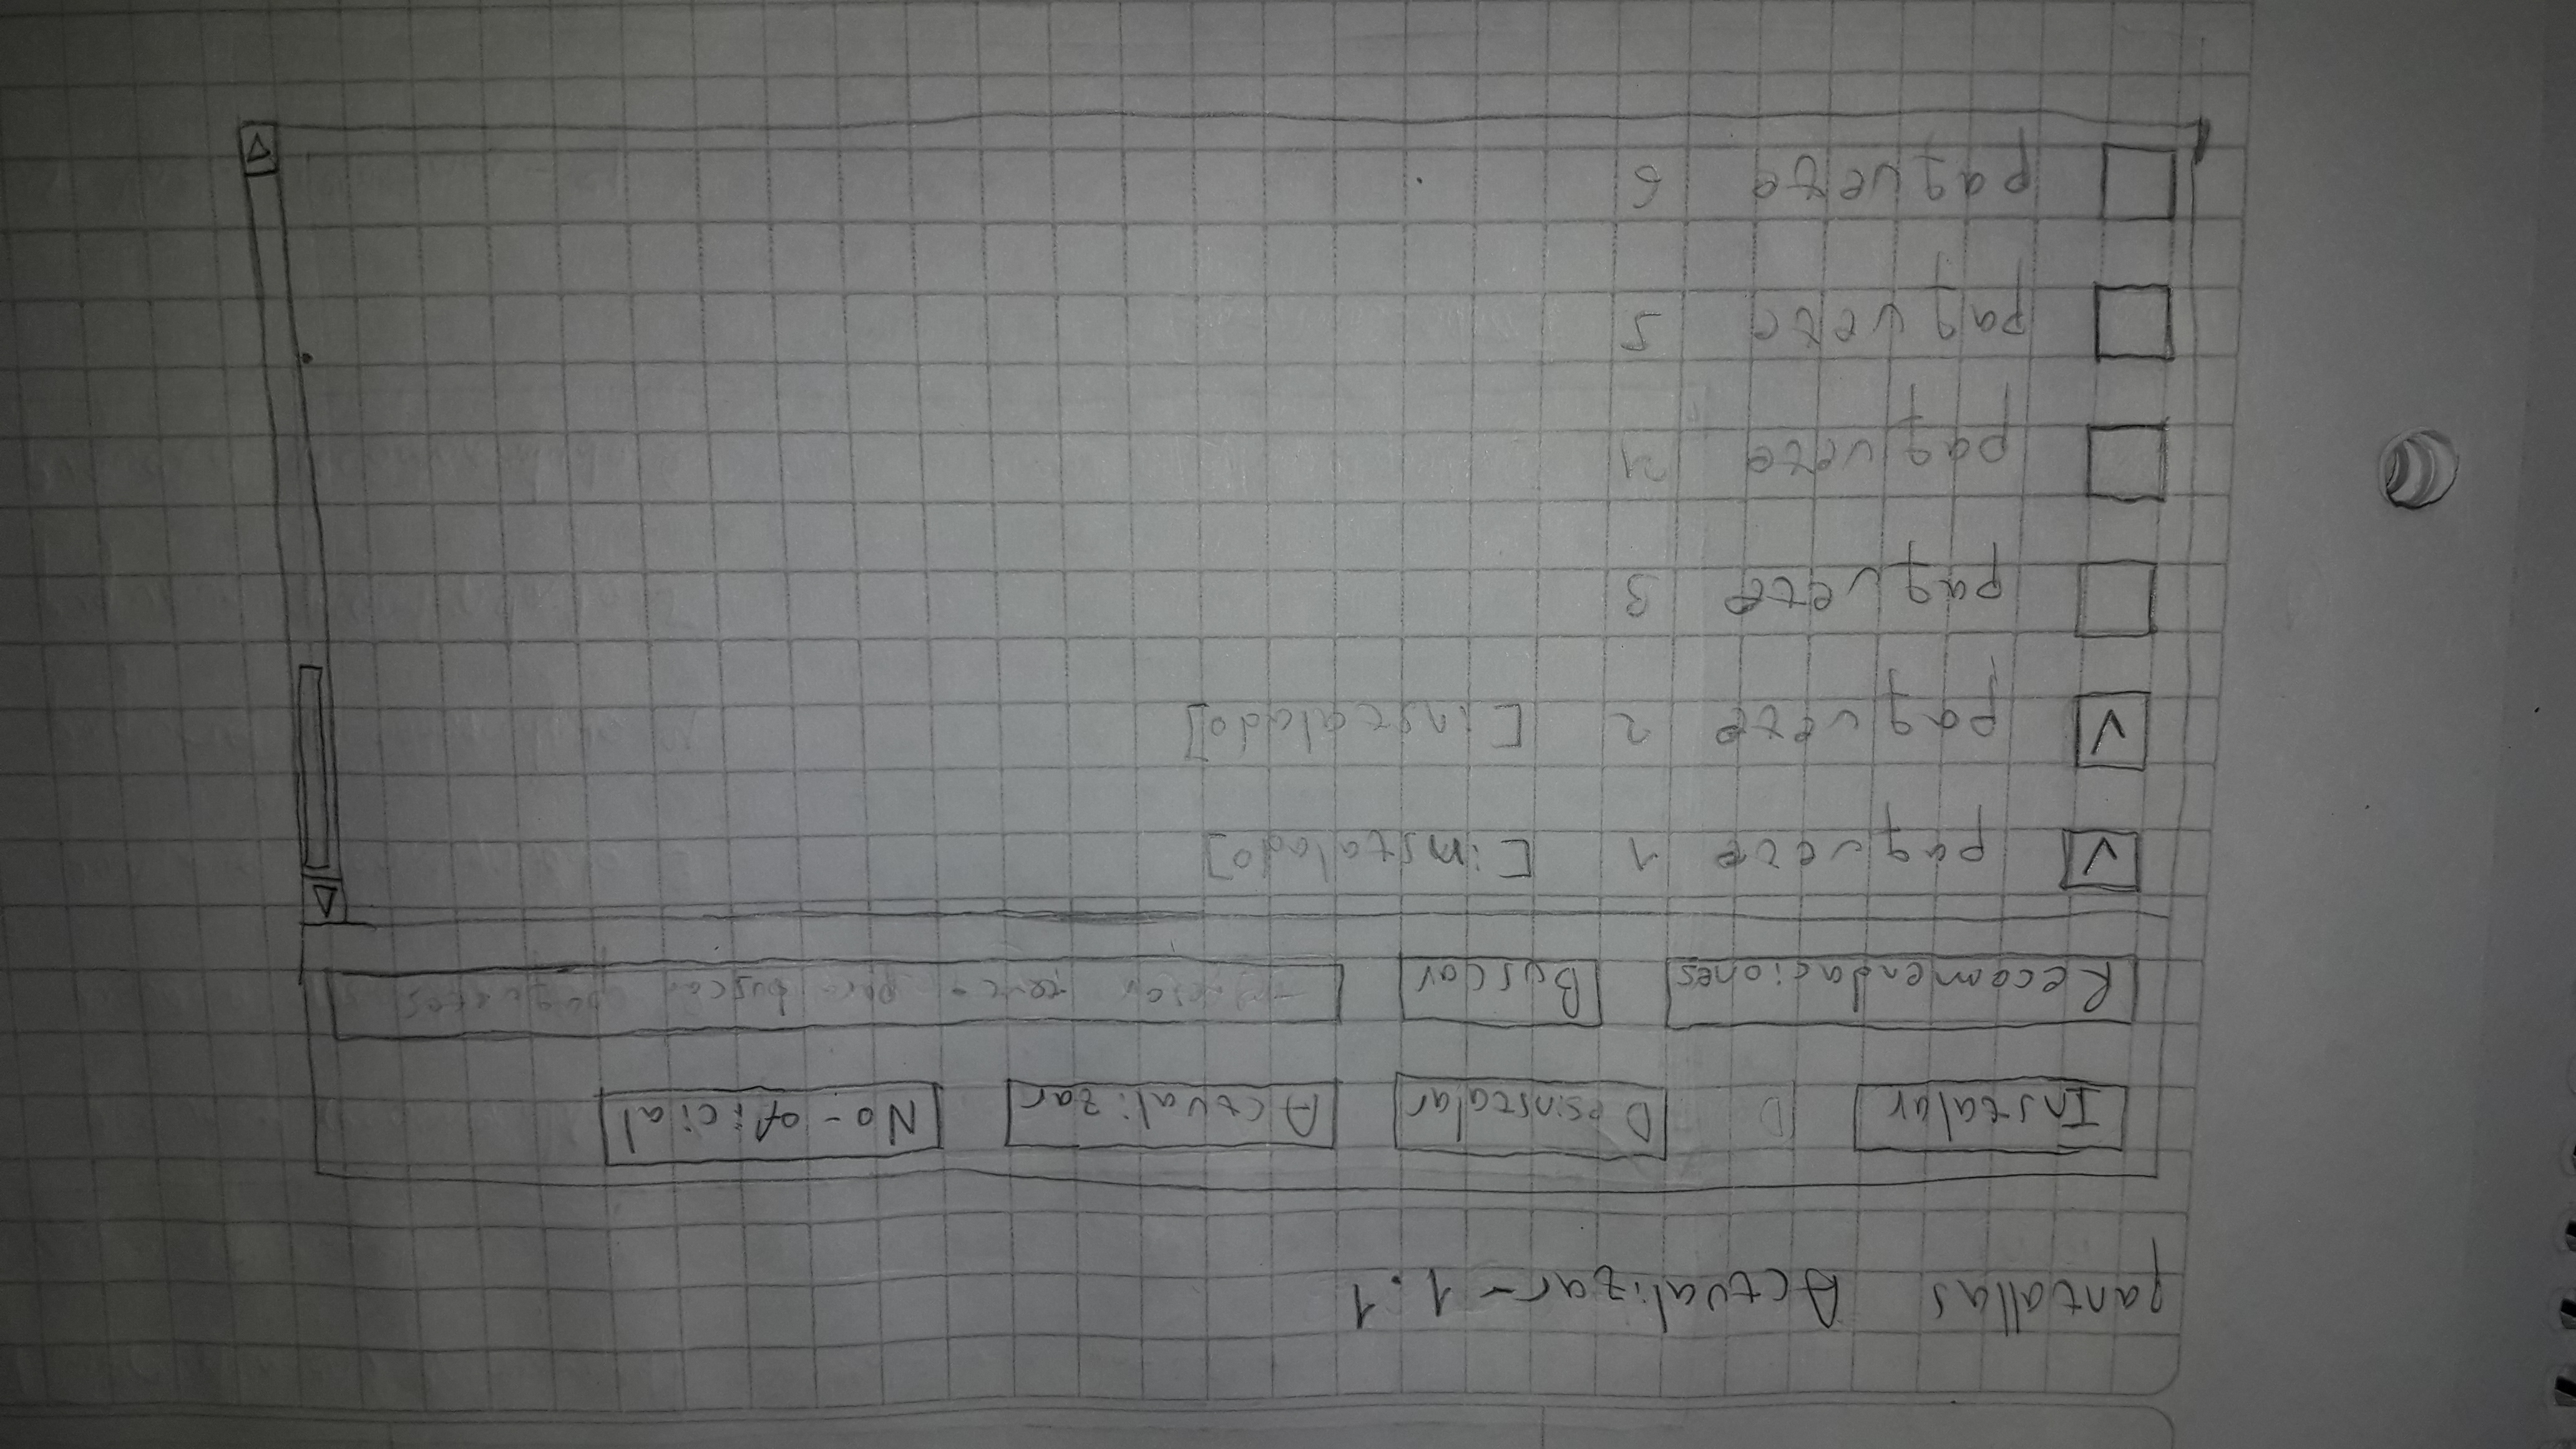 pantallas Actualizar - 1.1
Instalar D Desinstalar Actualizar No-oficial
Recomendaciones Buscar ingresar texto para buscar paquetes
paquete 1 [instalado]
paquete 2 [instalado]
paquete 3
paquete 4
paquete 5
paquete 6